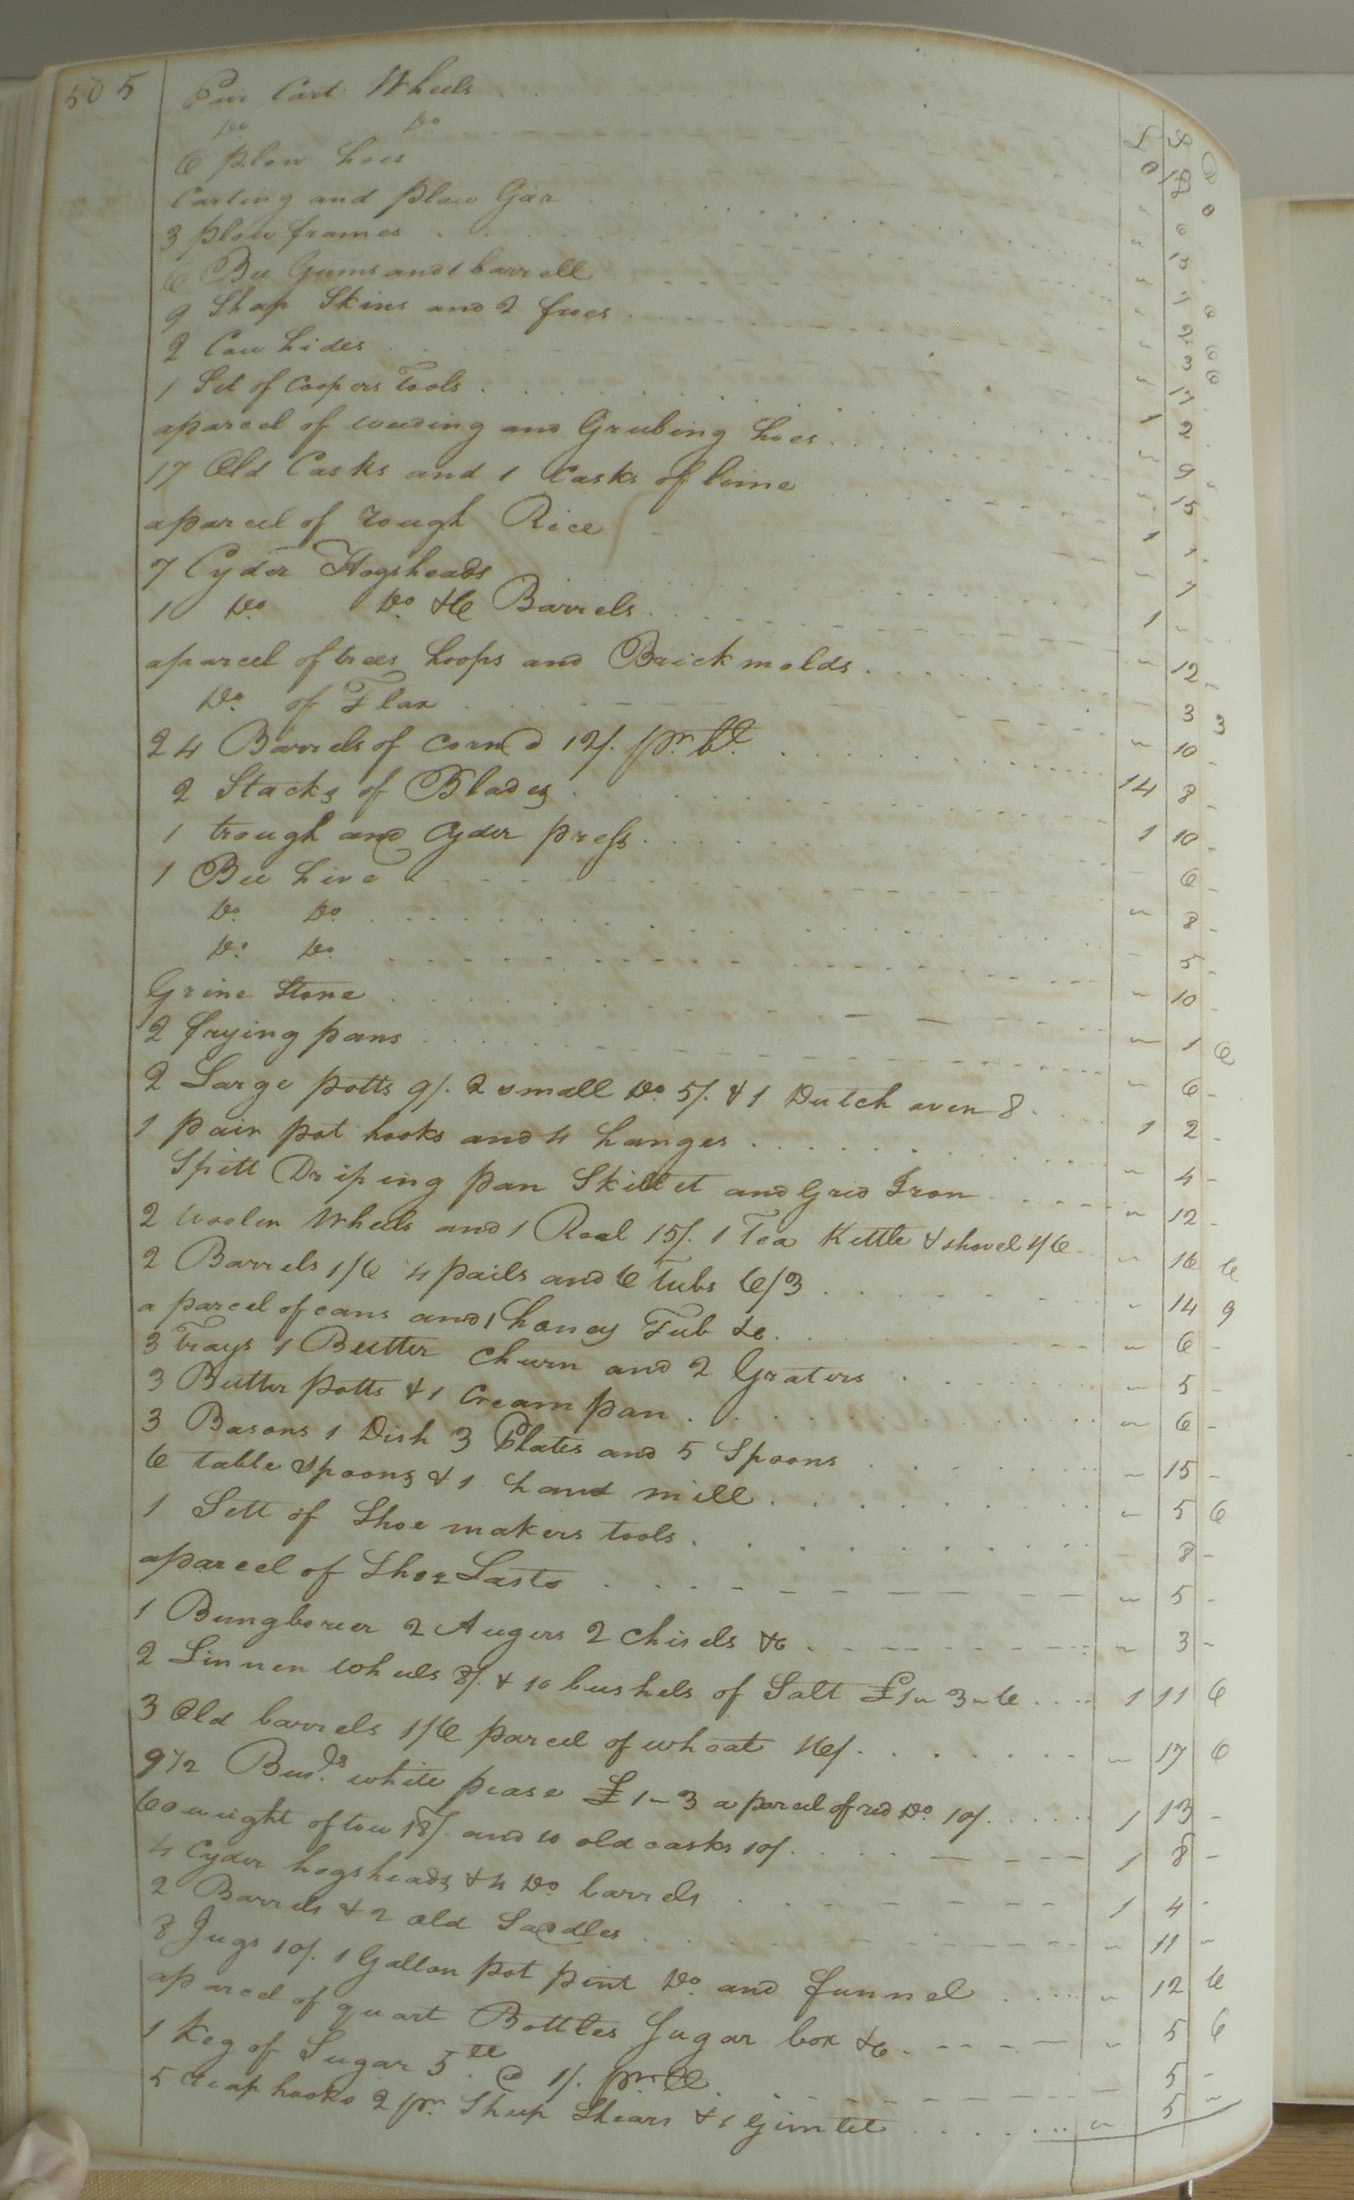 505
Pair Cart Wheels £ S D
Do Do 0 18 0
6 plow hoes 6
Carting and plow Gar 15
3 plow frames 7 6
6 Bee Gums and 1 barrell 2 6
9 Shap Skins and 2 froes 3 6
2 Cow hides 17
1 Set of Coopers Tools 1 2
aparcel of weeding and Grubing hoes 9 -
17 Old Casks and 1 Casks of lime 15
aparcel of rough Rice 1 1
7 Cyder Hogsheads 7
1 Do Do &6 Barrels 1 -
aparcel of trees hoops and Brick molds 12 -
Do of Flax 3 3
24 Barrels of corn @ 12/. pr. bl. 10 -
2 Stacks of Blades 14 8 -
1 trough and Cyder press 1 10 -
1 Bee hive 6 -
Do Do 8 -
Do Do 5 -
Grine Stone 10 -
2 frying pans 1 6
2 Large potts 9/. 2 small Do 5/. & 1 Dutch oven 8 6 -
1 pair pot hooks and 4 hanges 1 2 -
Spitt Driping pan Skillet and Grid Iron 4 -
2 Woolen Wheels and 1 Real 15/. 1 Tea Kettle & shovel 1/6 12 -
2 Barrels 1/6 4 pails and 6 Tubs 6/3 16 6
a parcel of cans and 1 honey Tub &c. 14 9
3 Trays 1 Butter Churn and 2 Graters 6 -
3 Butter potts & 1 Cream pan 5 -
3 Basons 1 Dish 3 Plates and 5 Spoons 6 -
6 table spoons & 1 hand mill 15 -
1 Sett of Shoe makers tools 5 6
aparcel of Shoe Lasts 8 -
1 Bungborer 2 Augers 2 Chisels &c 5 -
2 Linnen Wheels 8/. & 10 bushels of Salt £1 - 3 - 6 3 -
3 Old barrels 1/6 parcel of wheat 16/. 1 11 6
9 1/2 Bus.ls white pease £1 - 3 a parcel of red Do 10/. 17 6
60 weight of tow 18/. and 10 old casks 10/. 1 13 -
4 Cyder hogsheads & 4 Do barrels 1 8 -
2 Barrels & 2 old Saddles 1 4 -
8 Jugs 10/. 1 Gallon pot pint Do and funnel 11 -
aparcel of quart Bottles Sugar box &c 12 6
1 Keg of Sugar 5 ll @ 1/. pr ll 5 6
5 reap hooks 2 pr. Sheep Shears & 1 Gimlet 5 -
5 -